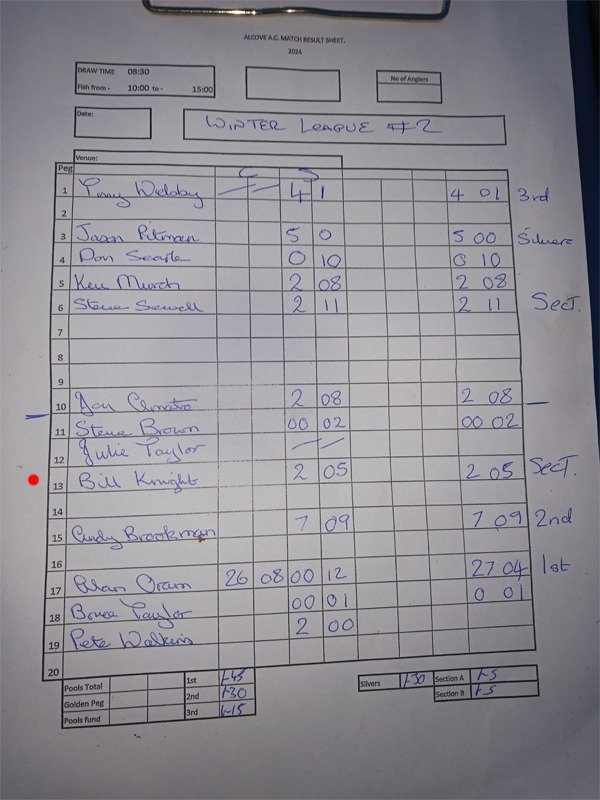 ALCOVE A.C. MATCH RESULT SHEET.
2024
DRAW TIME 08:30
Fish from - 10:00 to - 15:00
No of Anglers
Date:
WINTER LEAGUE #2
Venue:
Peg C S
1 Tony Welsby 4 1 4 01 3rd
2
3 Jason Pitman 5 0 5 00 Silvers
4 Don Searle 0 10 0 10
5 Ken Murch 2 08 2 08
6 Steve Sewell 2 11 2 11 SecT.
7
8
9
10 2 08 2 08
11 Steve Brown 00 02 00 02
12 Julie Taylor
13 Bill Knight 2 05 2 05 SecT.
14
15 Andy Brookman 7 09 7 09 2nd
16
17 Alan Oram 26 08 00 12 27 04 1st
18 Bruce Taylor 00 01 0 01
19 Pete Watkins 2 00
20
Pools Total 1st £45 Silvers £30 Section A £5
Golden Peg 2nd £30 Section B £5
Pools fund 3rd £15